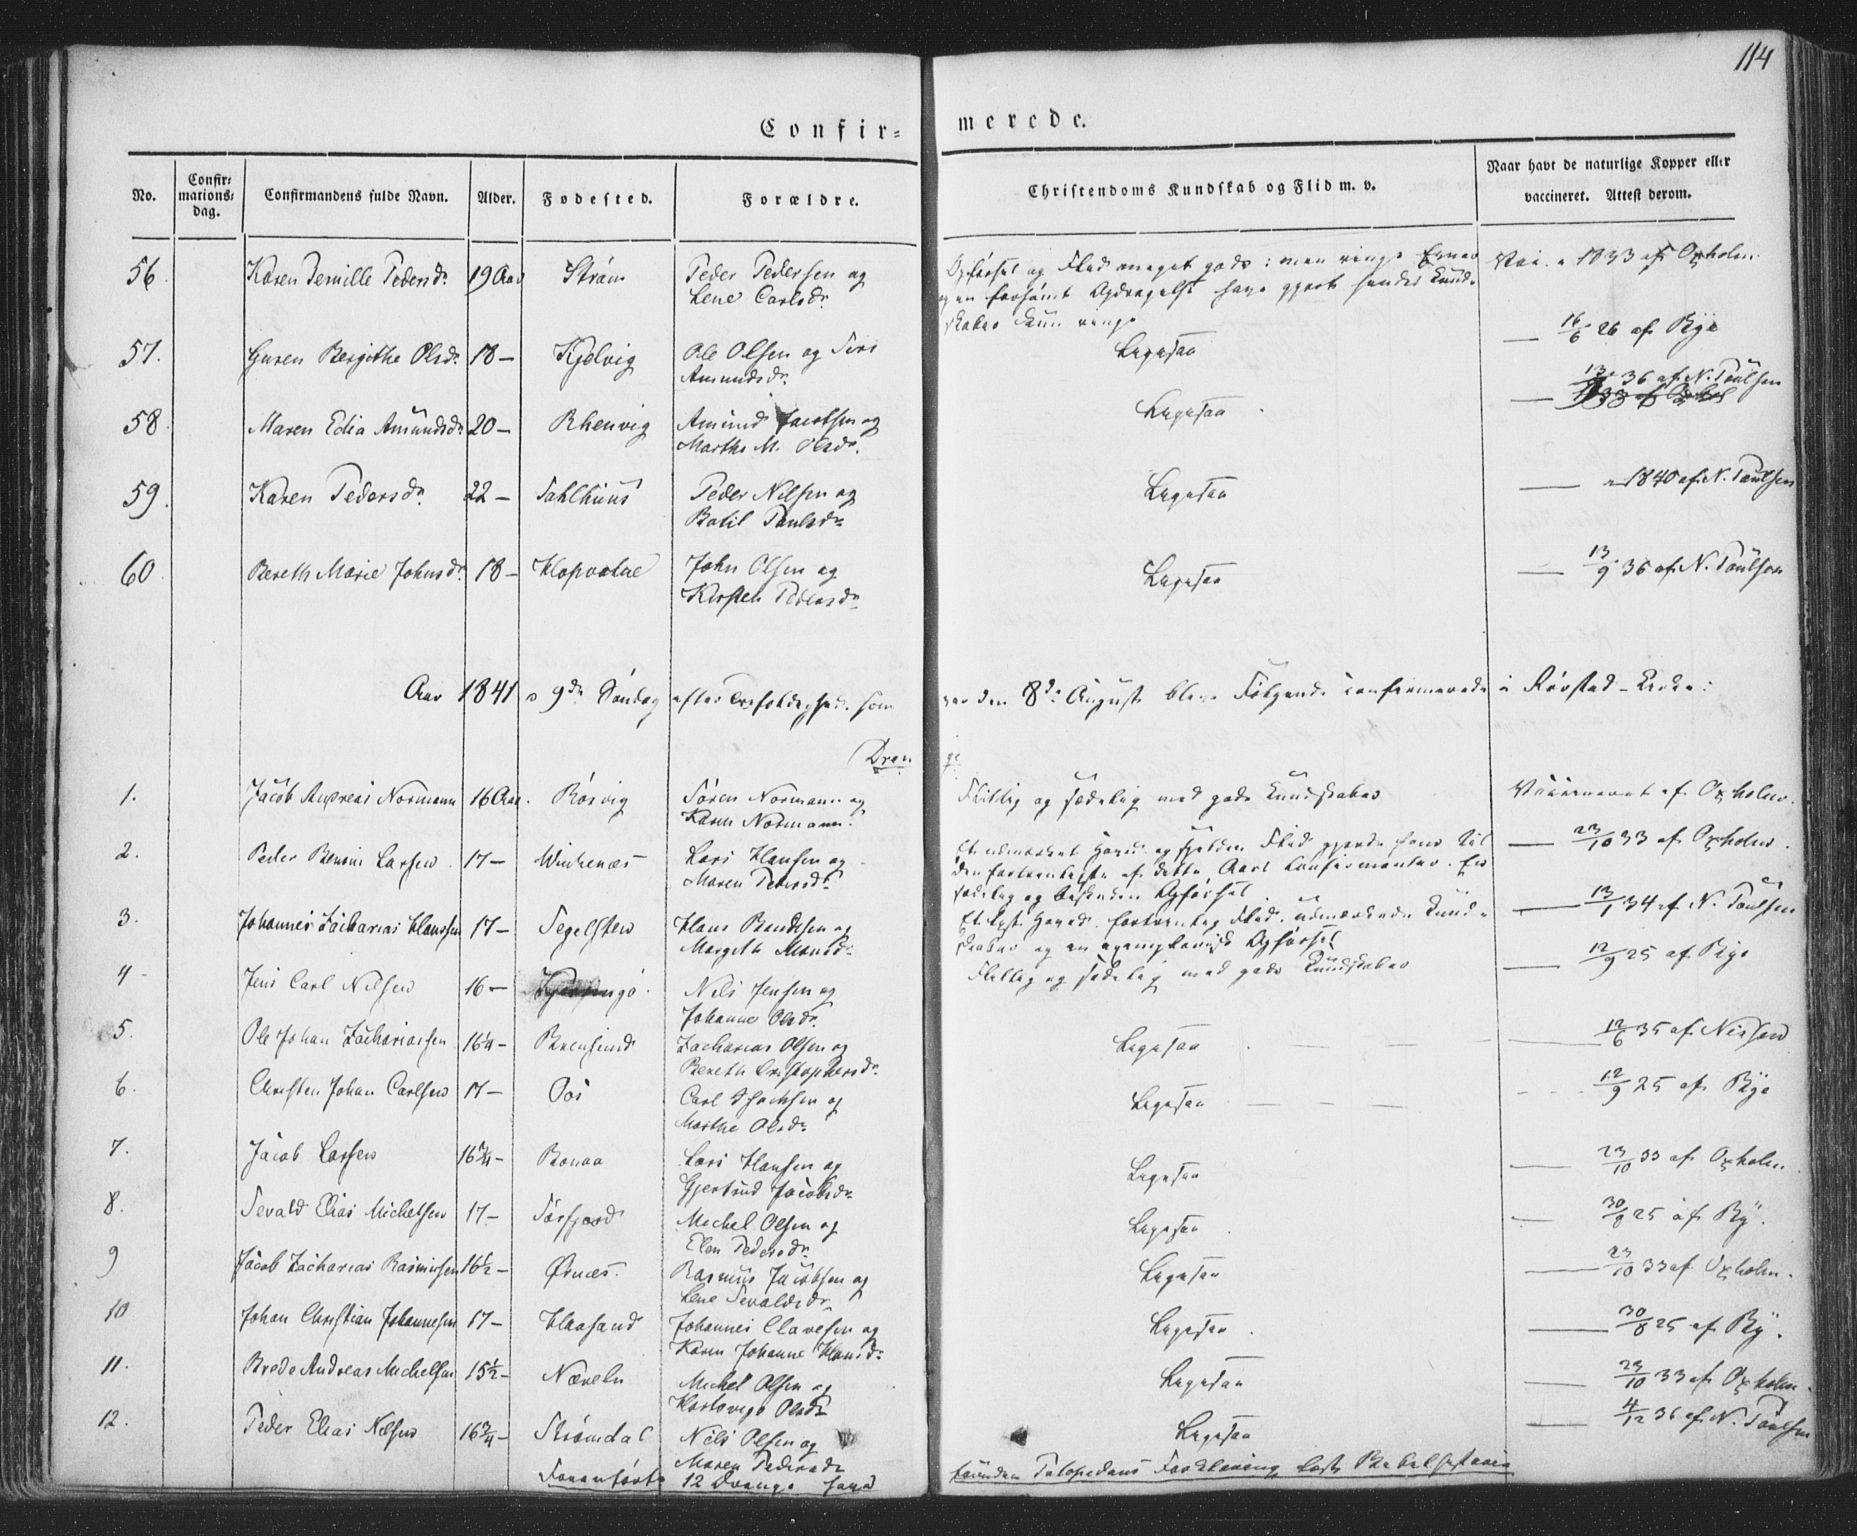 114
Confir-
merede.
No.
Confir-
mations-
dag.
Confirmandens fulde Navn.
Alder.
Fødested.
Forældre.
Christendoms Kundskab og Flid m. v.
Naar havt de naturlige Kopper eller
vaccineret. Attest derom.
56. Karen Pernille Pedersdr 19 Aar Strøm Peder Pedersen og
Lene Carlsdr.
Opførsel og Flid meget gode: men ringe Evner
og en forsømt Opdragelse have gjort hendes Kund-
skaber kun ringe
Vac. 1833 af Oxholm.
57. Guren Bergithe Olsdr 18 — Kjelvig Ole Olsen og Siri
Amundsdr.
Ligesaa
— 16/6 26 af Bye
58 Maren Edia Amundsdr 20 — Rhenvig Amund Jacobsen og
Marthe M. Olsdr.
Ligesaa
— 13/9 36 af N. Poulsen
59. Karen Pedersdr 22 — Peder Nilsen og
Botil Poulsdr
Ligesaa
— 1840 af N. Poulsen
60 Bereth Marie Johnsdr. 18 — Hopvatne John Olsen og
Kirsten Pedersdr
Ligesaa
— 13/9 36 af N. Poulsen
Aar 1841 9de Søndag efter Trefoldighed. som
var den 8de August bleve Følgende confirmerede i Rørstad-Kirke:
Dren
ge
1. Jacob Andreas Normann 16 Aar. Røsvig Søren Normann og
Karen Normann.
Flittig og sædelig med gode Kundskaber
Vaccineret af Oxholm.
2. Peder Larsen 17 — Lars Hansen og
Maren Pedersdr
Et udmærket Hoved og sjelden Flid gjorde ham til
den fortrinligste af dette Aars Confirmanter. En
sædelig og beskeden Opførsel
— 23/10 33 af Oxholm.
3. Johannes Zacharias Hanssen 17 — Segelsten Hans Bendtsen og
Margith Hansdr.
Et Hoved. fortrinlig Flid, udmærkede Kund-
skaber og en exemplarisk Opførsel
— 13/1 34 af N. Poulsen
4 Jens Carl Nilsen 16 — Nils Jensen og
Johanne Olsdr.
Flittig og sædelig med gode Kundskaber
— 12/9 25 af Bye
5. Ole Johan Zachariassen 16¼ — Brensund Zacharias Olsen og
Bereth Cristophersdr.
Ligesaa
— 12/6 35 af Nissen
6. Christen Johan Carlsen 17 — Oos Carl Isachsen og
Marthe Olsdr.
Ligesaa
12/9 25 af Bye
7. Jacob Larsen 16¾ — Bonaa Lars Hansen og
Gjertrud Jacobsdr
Ligesaa
— 23/10 33 af Oxholm.
8. Sevald Elias Michelsen 17 — Sørfjord Michel Olsen og
Elen Pedersdr
Ligesaa
— 30/8 25 af By.
9 Jacob Zacharias Rasmusen 16½ — Ørnæs. Rasmus Jacobsen og
Lene Sevaldsdr.
Ligesaa
— 23/10 33 af Oxholm.
10 Johan Christian Johannesen 17 — Haasand Johannes Clavesen og
Karen Johanne Hansdr
Ligesaa
— 30/8 25 af By.
11. Brede Andreas Michelsen 15½ — Næveln Michel Olsen og
Olsdr
Ligesaa
— 23/10 33 af Oxholm.
12. Peder Elias Nilsen 16¾ — Strømdal Nils Olsen og
Maren Pedersdr
Ligesaa
— 4/12 36 af N. Poulsen
Foranførte 12 Drenge havde
foruden Pontopedans Forklaring læst Bibelhistorien